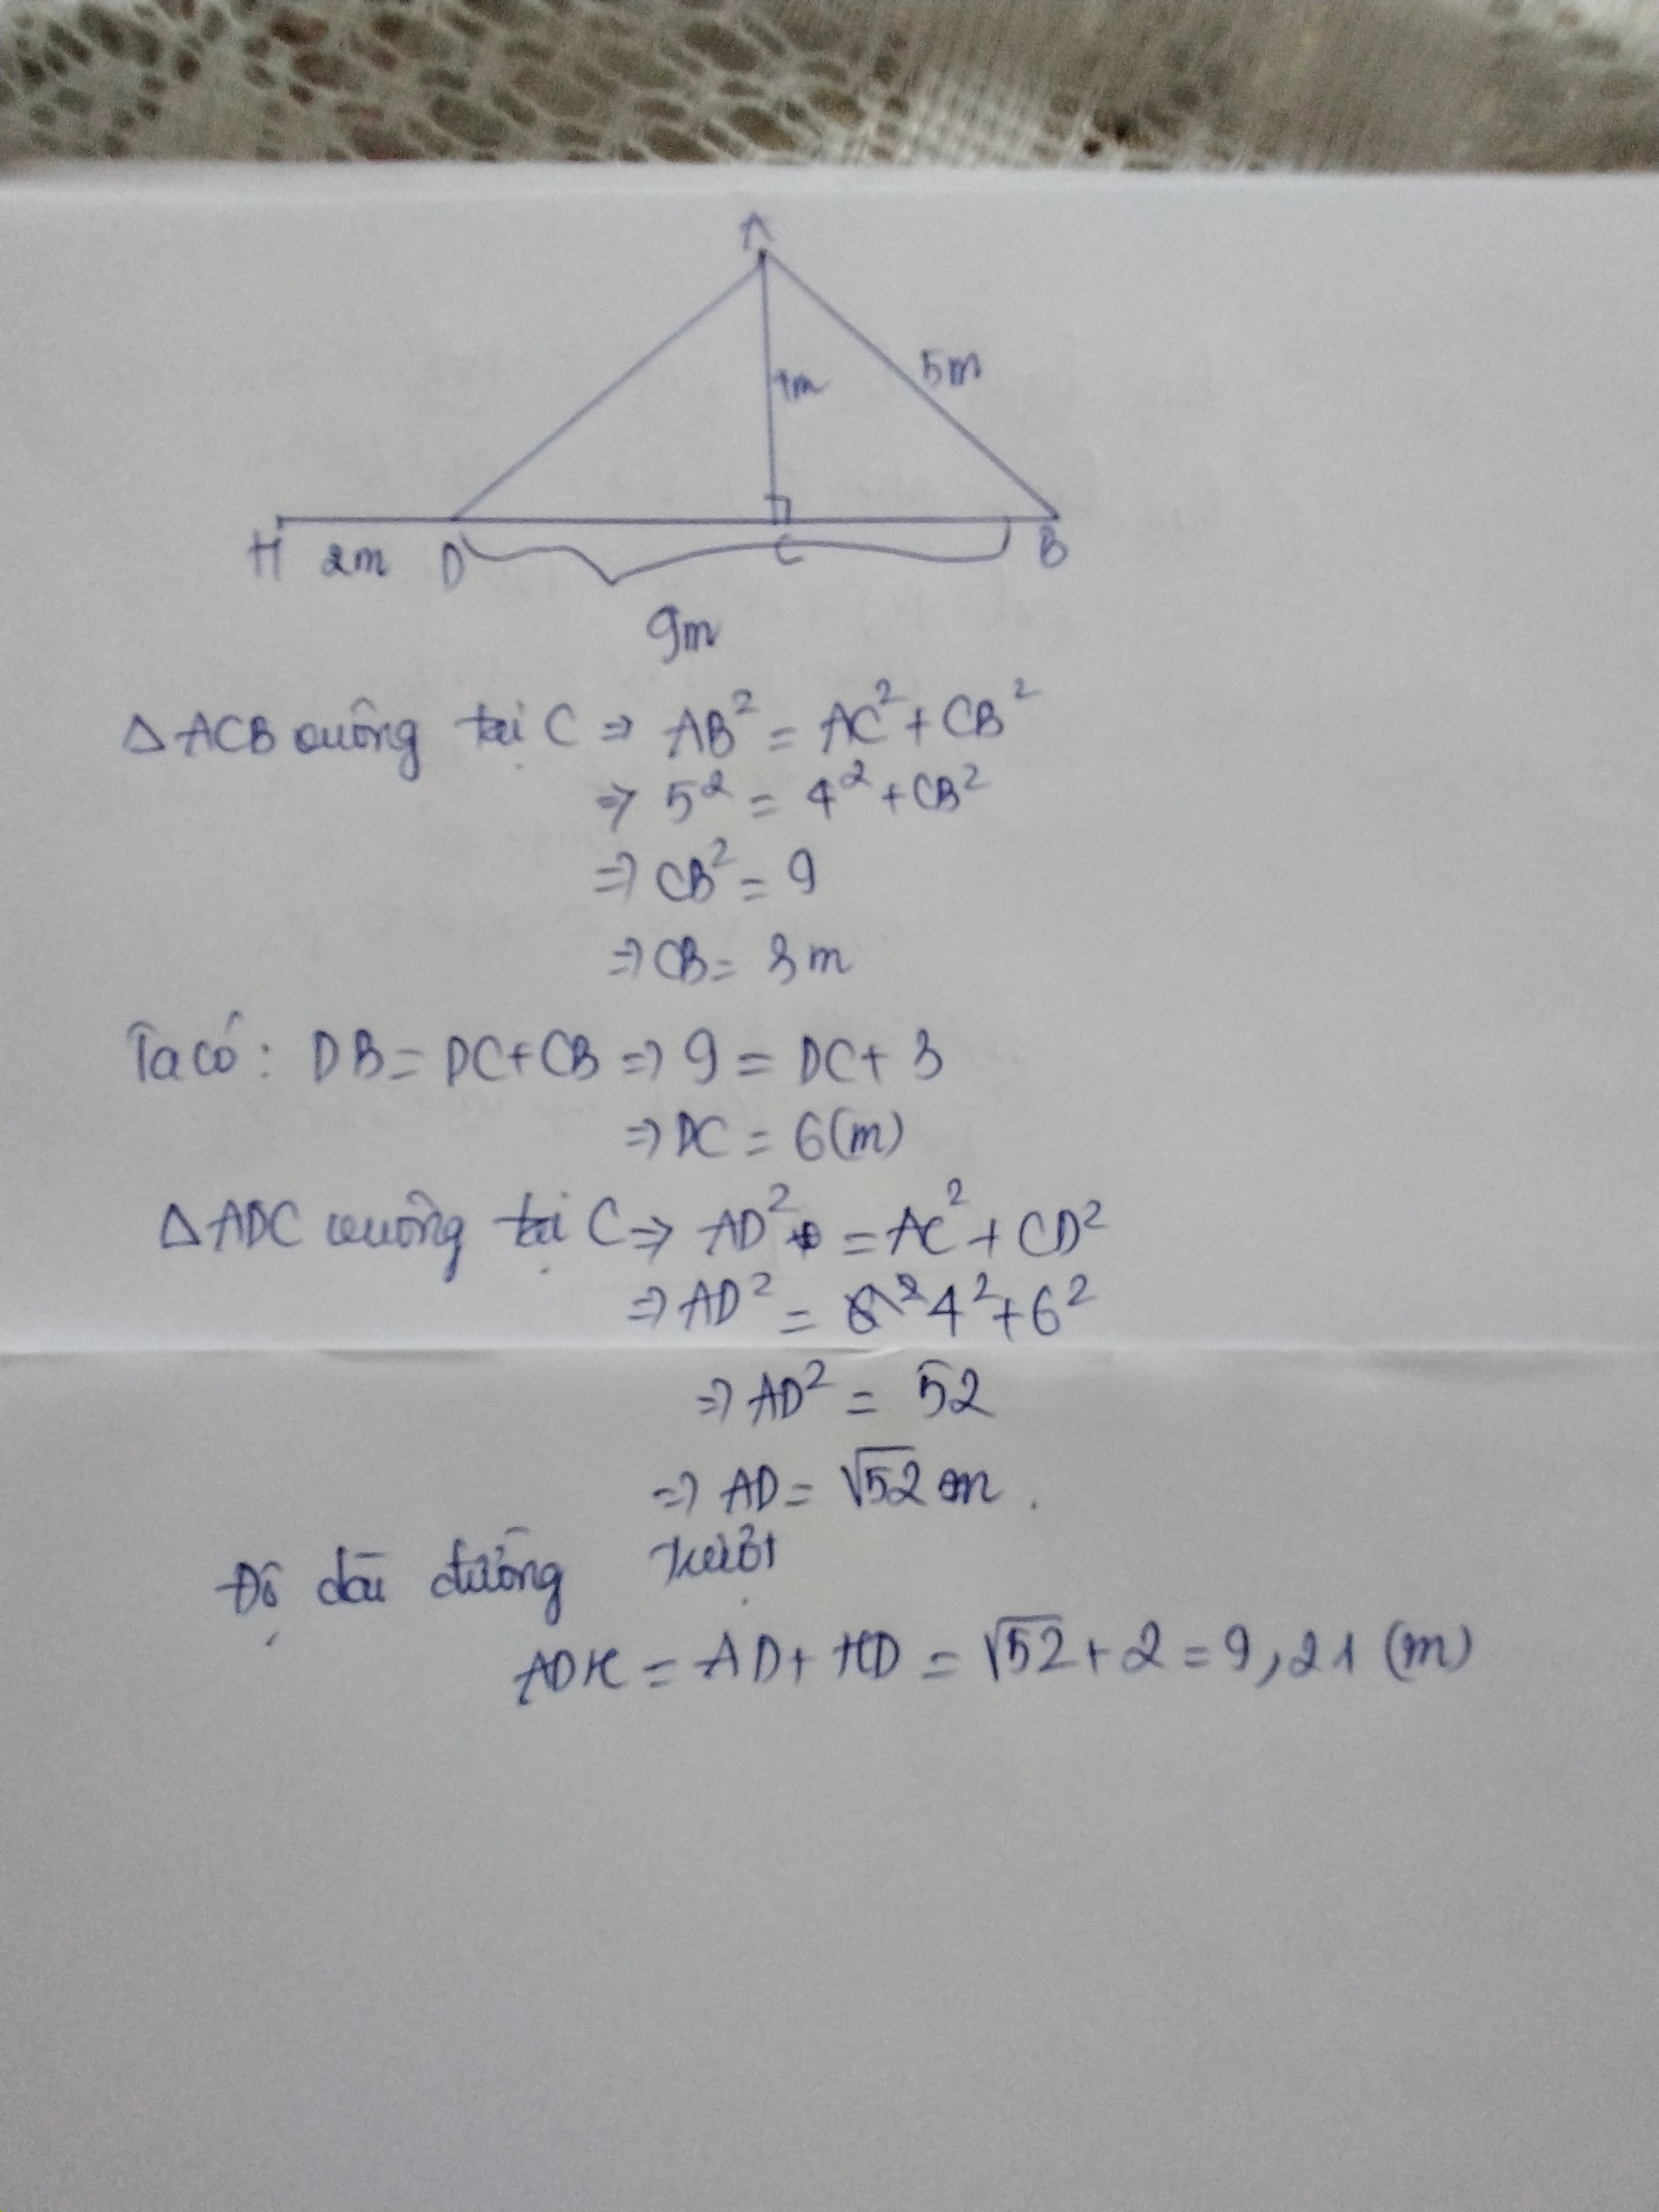 A
4m
5m
H 2m D C B
9m
∆ ACB vuông tại C ⇒ AB² = AC² + CB²
⇒ 5² = 4² + CB²
⇒ CB² = 9
⇒ CB = 3m
Ta có: DB = DC + CB ⇒ 9 = DC + 3
⇒ DC = 6 (m)
∆ ADC vuông tại C ⇒ AD² = AC² + CD²
⇒ AD² = 4² + 6²
⇒ AD² = 52
⇒ AD = √52 m.
Độ dài đường trượt
ADH = AD + HD = √52 + 2 = 9,21 (m)